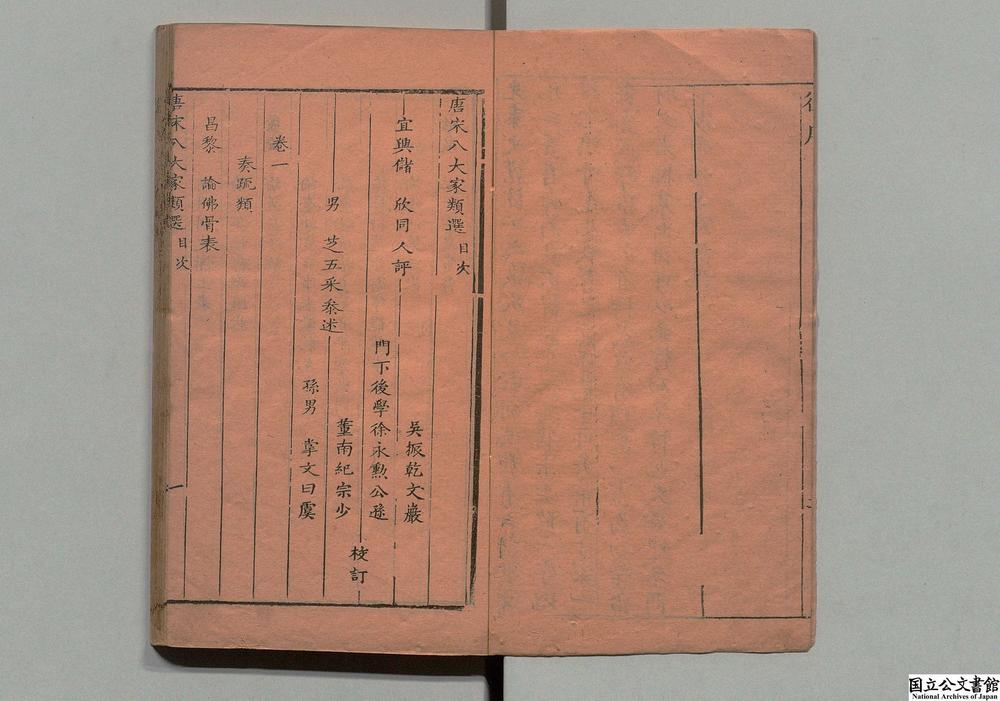 唐宋八大家類選目次
宜興儲 欣同人評
男 芝五采叅述
吳振乾文巖
門下後學徐永勲公遜
董南紀宗少
孫男 掌文曰虞
校訂
卷一
奏疏類
昌黎 論佛骨表
唐宋八大家類選 目次
一
国立公文書館
National Archives of Japan